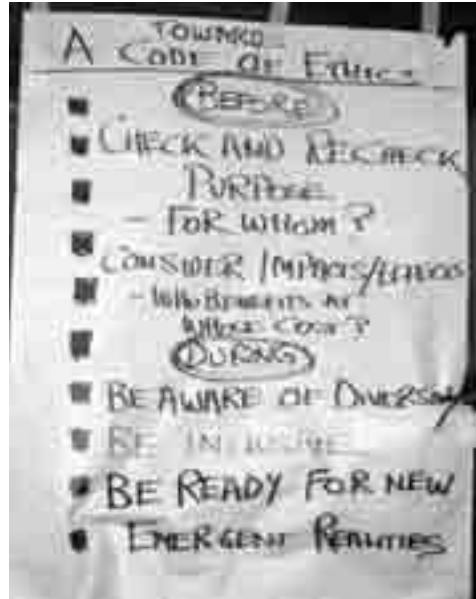 TOWARD
A CODE OF ETHICS
BEFORE
CHECK AND RECHECK
PURPOSE
- FOR WHOM?
CONSIDER IMPACTS/
- WHO BENEFITS AT
WHOSE COST?
DURING
BE AWARE OF DIVERSITY
BE INCLUSIVE
BE READY FOR NEW
EMERGENT REALITIES